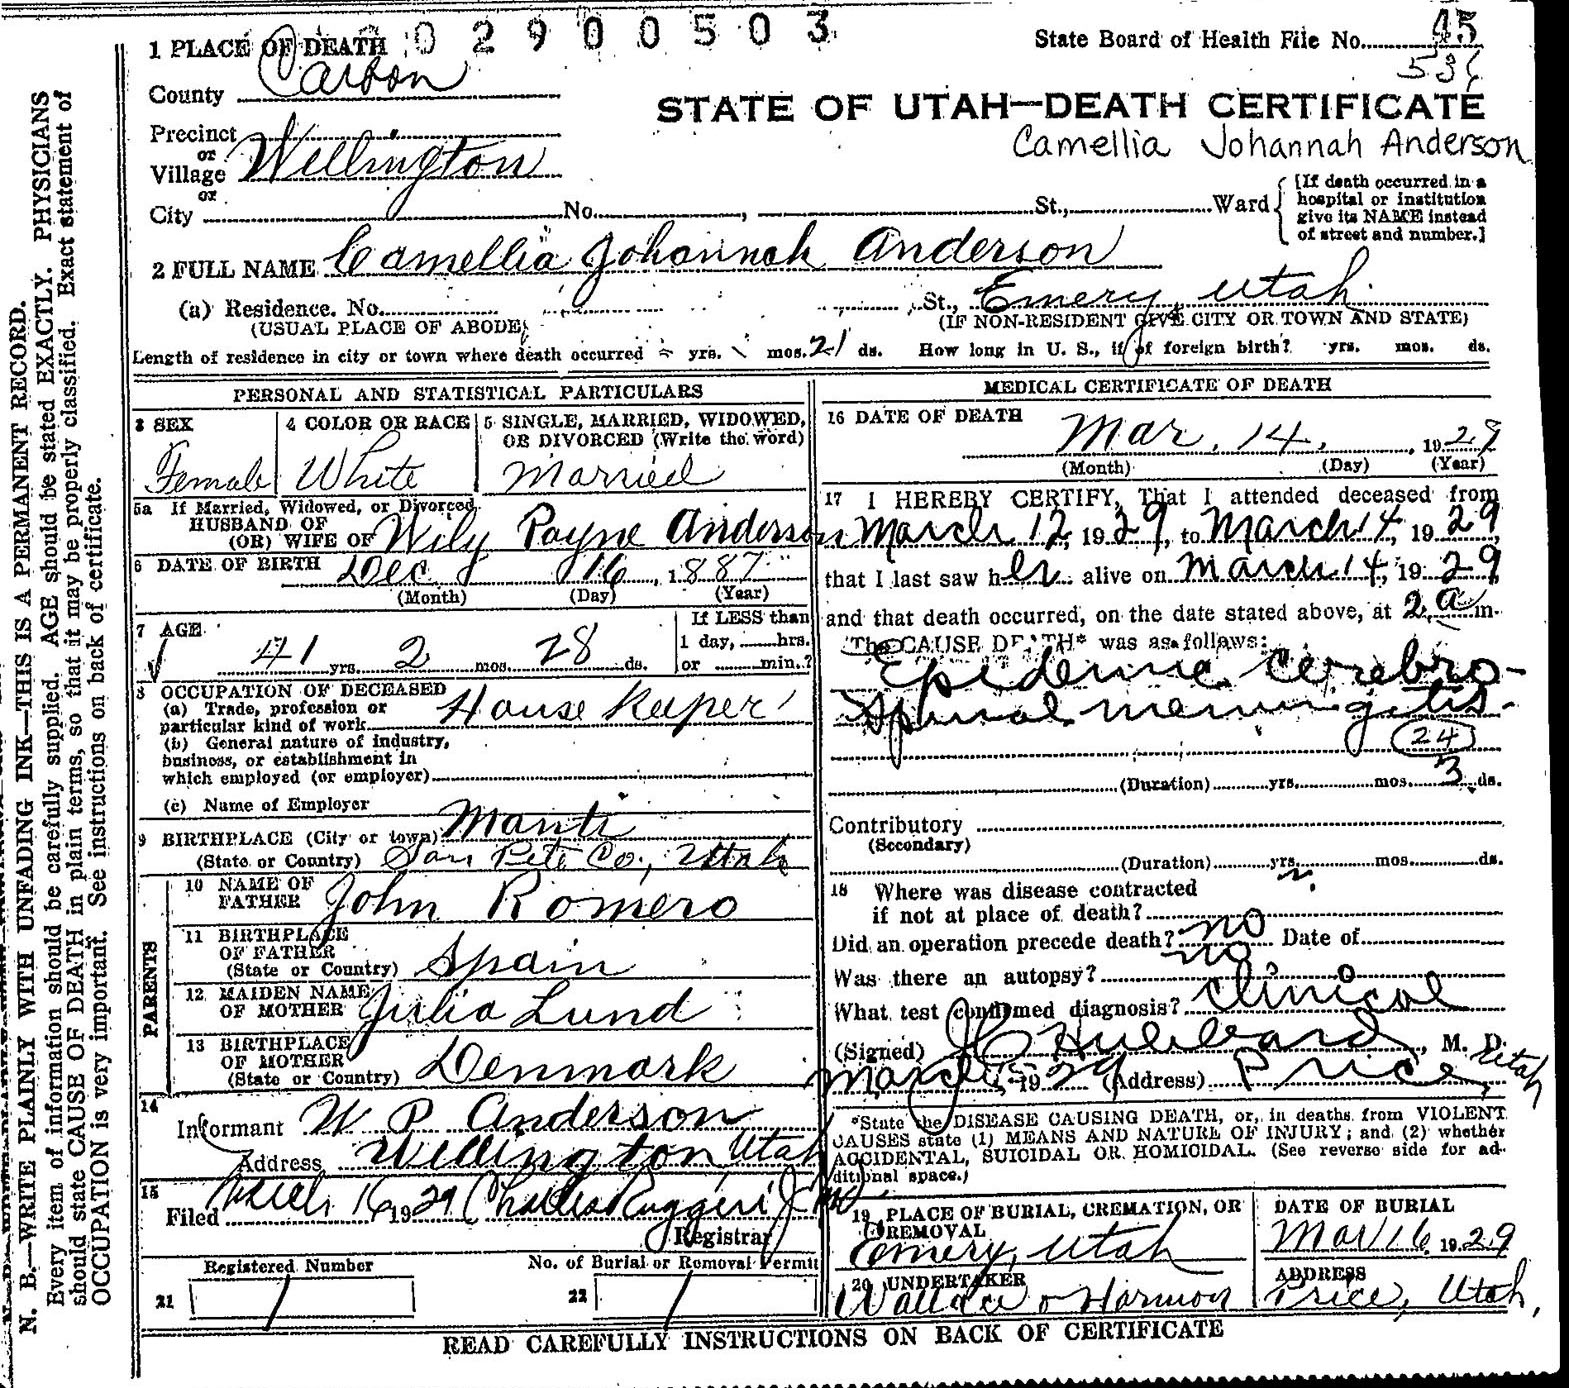 0 2 9 0 0 5 0 3
1 PLACE OF DEATH
State Board of Health File No. 45
County Carbon
STATE OF UTAH—DEATH CERTIFICATE
Camellia Johannah Anderson
Precinct
or
Village Wellington
or
City No. , St., Ward
[If death occurred in a hospital or institution give its NAME instead of street and number.]
2 FULL NAME Camellia Johannah Anderson
(a) Residence. No. St., Emery, Utah
(USUAL PLACE OF ABODE)
(IF NON-RESIDENT GIVE CITY OR TOWN AND STATE)
Length of residence in city or town where death occurred - yrs. mos. 21 ds. How long in U. S., if of foreign birth? yrs. mos. ds.
PERSONAL AND STATISTICAL PARTICULARS
3 SEX
Female
4 COLOR OR RACE
White
5 SINGLE, MARRIED, WIDOWED,
OR DIVORCED (Write the word)
Married
5a If Married, Widowed, or Divorced
HUSBAND OF
(OR) WIFE OF Wily Payne Anderson
6 DATE OF BIRTH Dec 16, 1887
(Month) (Day) (Year)
7 AGE
41 yrs. 2 mos. 28 ds.
If LESS than
1 day, hrs.
or min.?
8 OCCUPATION OF DECEASED
(a) Trade, profession or
particular kind of work House Keeper
(b) General nature of industry,
business, or establishment in
which employed (or employer)
(c) Name of Employer
9 BIRTHPLACE (City or town) Manti
(State or Country) San Pete Co., Utah
PARENTS
10 NAME OF
FATHER John Romero
11 BIRTHPLACE
OF FATHER
(State or Country) Spain
12 MAIDEN NAME
OF MOTHER Julia Lund
13 BIRTHPLACE
OF MOTHER
(State or Country) Denmark
14
Informant W P Anderson
Address Wellington Utah
15
Filed March 16 1929 Charles Ruggeri
Registrar
Registered Number
No. of Burial or Removal Permit
21 1
22 1
MEDICAL CERTIFICATE OF DEATH
16 DATE OF DEATH
Mar. 14, 1929
(Month) (Day) (Year)
17 I HEREBY CERTIFY, That I attended deceased from
March 12, 1929, to March 14, 1929,
that I last saw her alive on March 14, 1929
and that death occurred, on the date stated above, at 2 a m.
The CAUSE DEATH* was as follows:
Epidemic Cerebro-
Spinal meningitis.
24
(Duration) yrs. mos. 3 ds.
Contributory
(Secondary)
(Duration) yrs. mos. ds.
18 Where was disease contracted
if not at place of death?
Did an operation precede death? no Date of
Was there an autopsy? no
What test confirmed diagnosis? Clinical
(Signed) J C Hubbard, M. D.
March 1929 (Address) Price, Utah
*State the DISEASE CAUSING DEATH, or, in deaths from VIOLENT
CAUSES state (1) MEANS AND NATURE OF INJURY; and (2) whether
ACCIDENTAL, SUICIDAL OR HOMICIDAL. (See reverse side for ad-
ditional space.)
19 PLACE OF BURIAL, CREMATION, OR
REMOVAL
Emery, Utah
DATE OF BURIAL
Mar 16 1929
20 UNDERTAKER
Wallace & Harmon
ADDRESS
Price, Utah,
READ CAREFULLY INSTRUCTIONS ON BACK OF CERTIFICATE
N. B.—WRITE PLAINLY WITH UNFADING INK—THIS IS A PERMANENT RECORD.
Every item of information should be carefully supplied. AGE should be stated EXACTLY. PHYSICIANS
should state CAUSE OF DEATH in plain terms, so that it may be properly classified. Exact statement of
OCCUPATION is very important. See instructions on back of certificate.